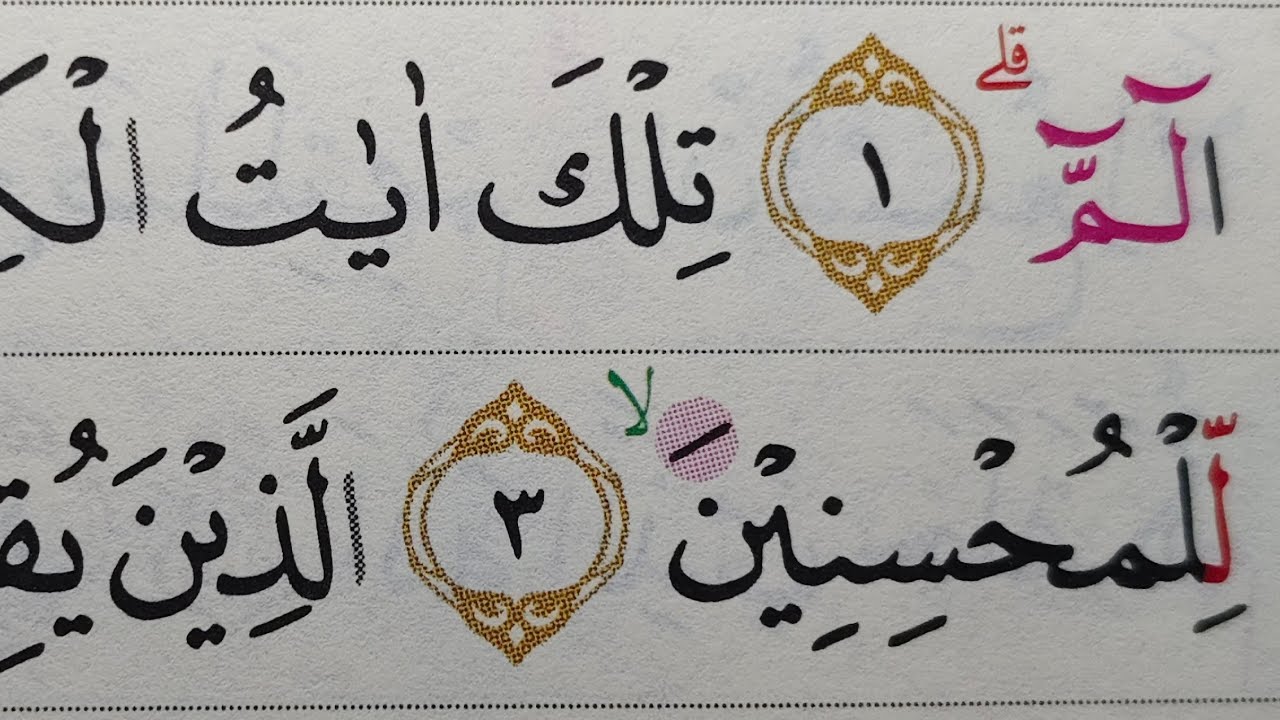 الٓمّٓ ۗ ١ تِلْكَ اٰيٰتُ الْكِ
لِّلْمُحْسِنِيْنَ ۙ ٣ الَّذِيْنَ يُقِ